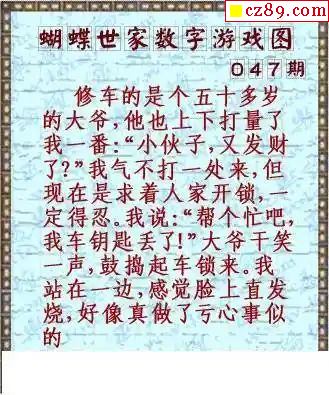 cz89.com
蝴蝶世家数字游戏图
047期
修车的是个五十多岁
的大爷，他也上下打量了
我一番：“小伙子，又发财
了？”我气不打一处来，但
现在是求着人家开锁，一
定得忍。我说：“帮个忙吧，
我车钥匙丢了！”大爷干笑
一声，鼓捣起车锁来。我
站在一边，感觉脸上直发
烧，好像真做了亏心事似
的